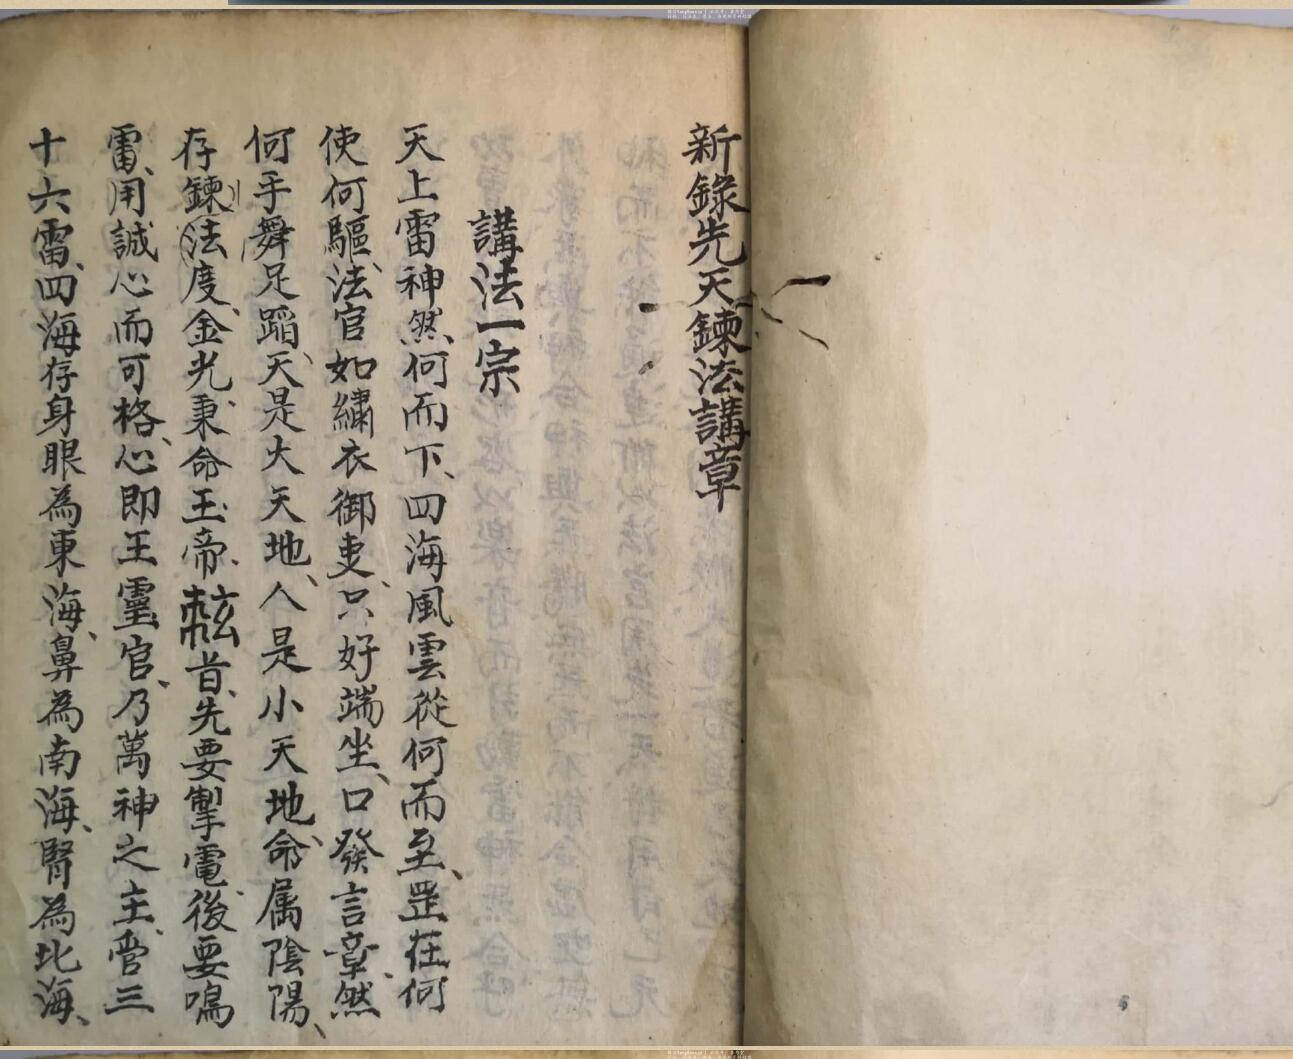 新錄先天鍊法講章
講法一宗
天上雷神然、何而下、四海風雲從何而至、罡在何
使何驅、法官如繡衣御吏、只好端坐、口發言章、然
何手舞足蹈、天是大天地、人是小天地、命属陰陽、
存鍊法度、金光秉命玉帝、首、先要掣電、後要鳴
雷、用誠心而可格、心即王靈官、乃萬神之主、管三
十六雷、四海存身眼為東海、鼻為南海、腎為北海、